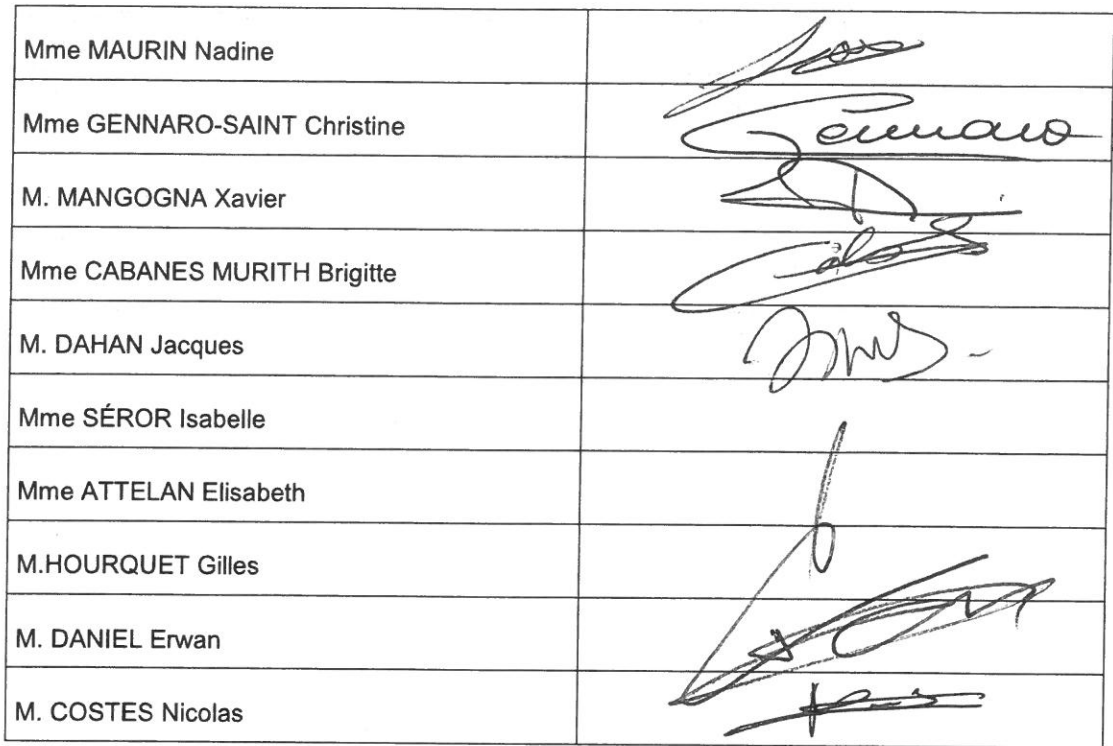 Mme MAURIN Nadine
Mme GENNARO-SAINT Christine
Gennaro
M. MANGOGNA Xavier
Mme CABANES MURITH Brigitte
M. DAHAN Jacques
Mme SÉROR Isabelle
Mme ATTELAN Elisabeth
M.HOURQUET Gilles
M. DANIEL Erwan
M. COSTES Nicolas